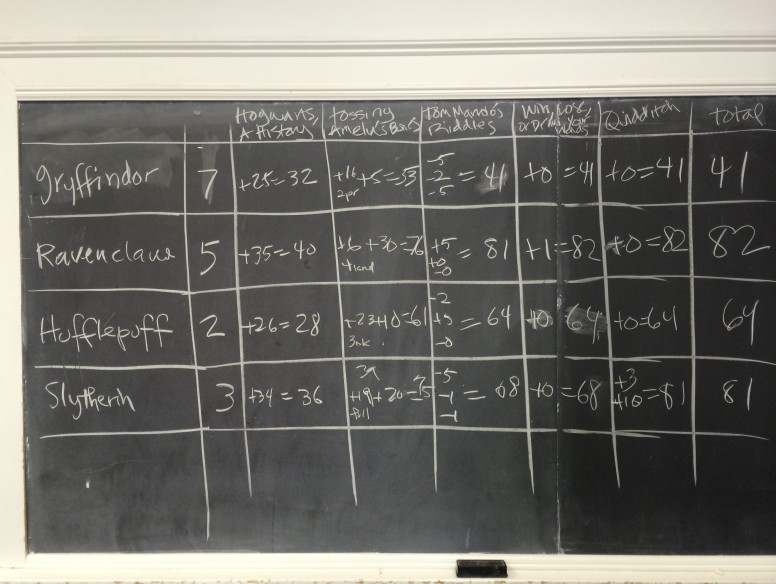 Hogwarts, A History
Tossing Amelia's Bones
Tom Mando's Riddles
Win, Lose, or Draw your wands
Quidditch
total
Gryffindor 7 +25=32 +16 +5=53 2pr -5 -2 -5 = 41 +0 =41 +0=41 41
Ravenclaw 5 +35=40 +6 +30=76 4kind +5 +0 -0 = 81 +1=82 +0=82 82
Hufflepuff 2 +26=28 +23+10=61 3nk -2 +5 -0 = 64 +0 64 +0=64 64
Slytherin 3 +34=36 +19+20=75 full -5 -1 -1 = 68 +0=68 +3 +10=81 81